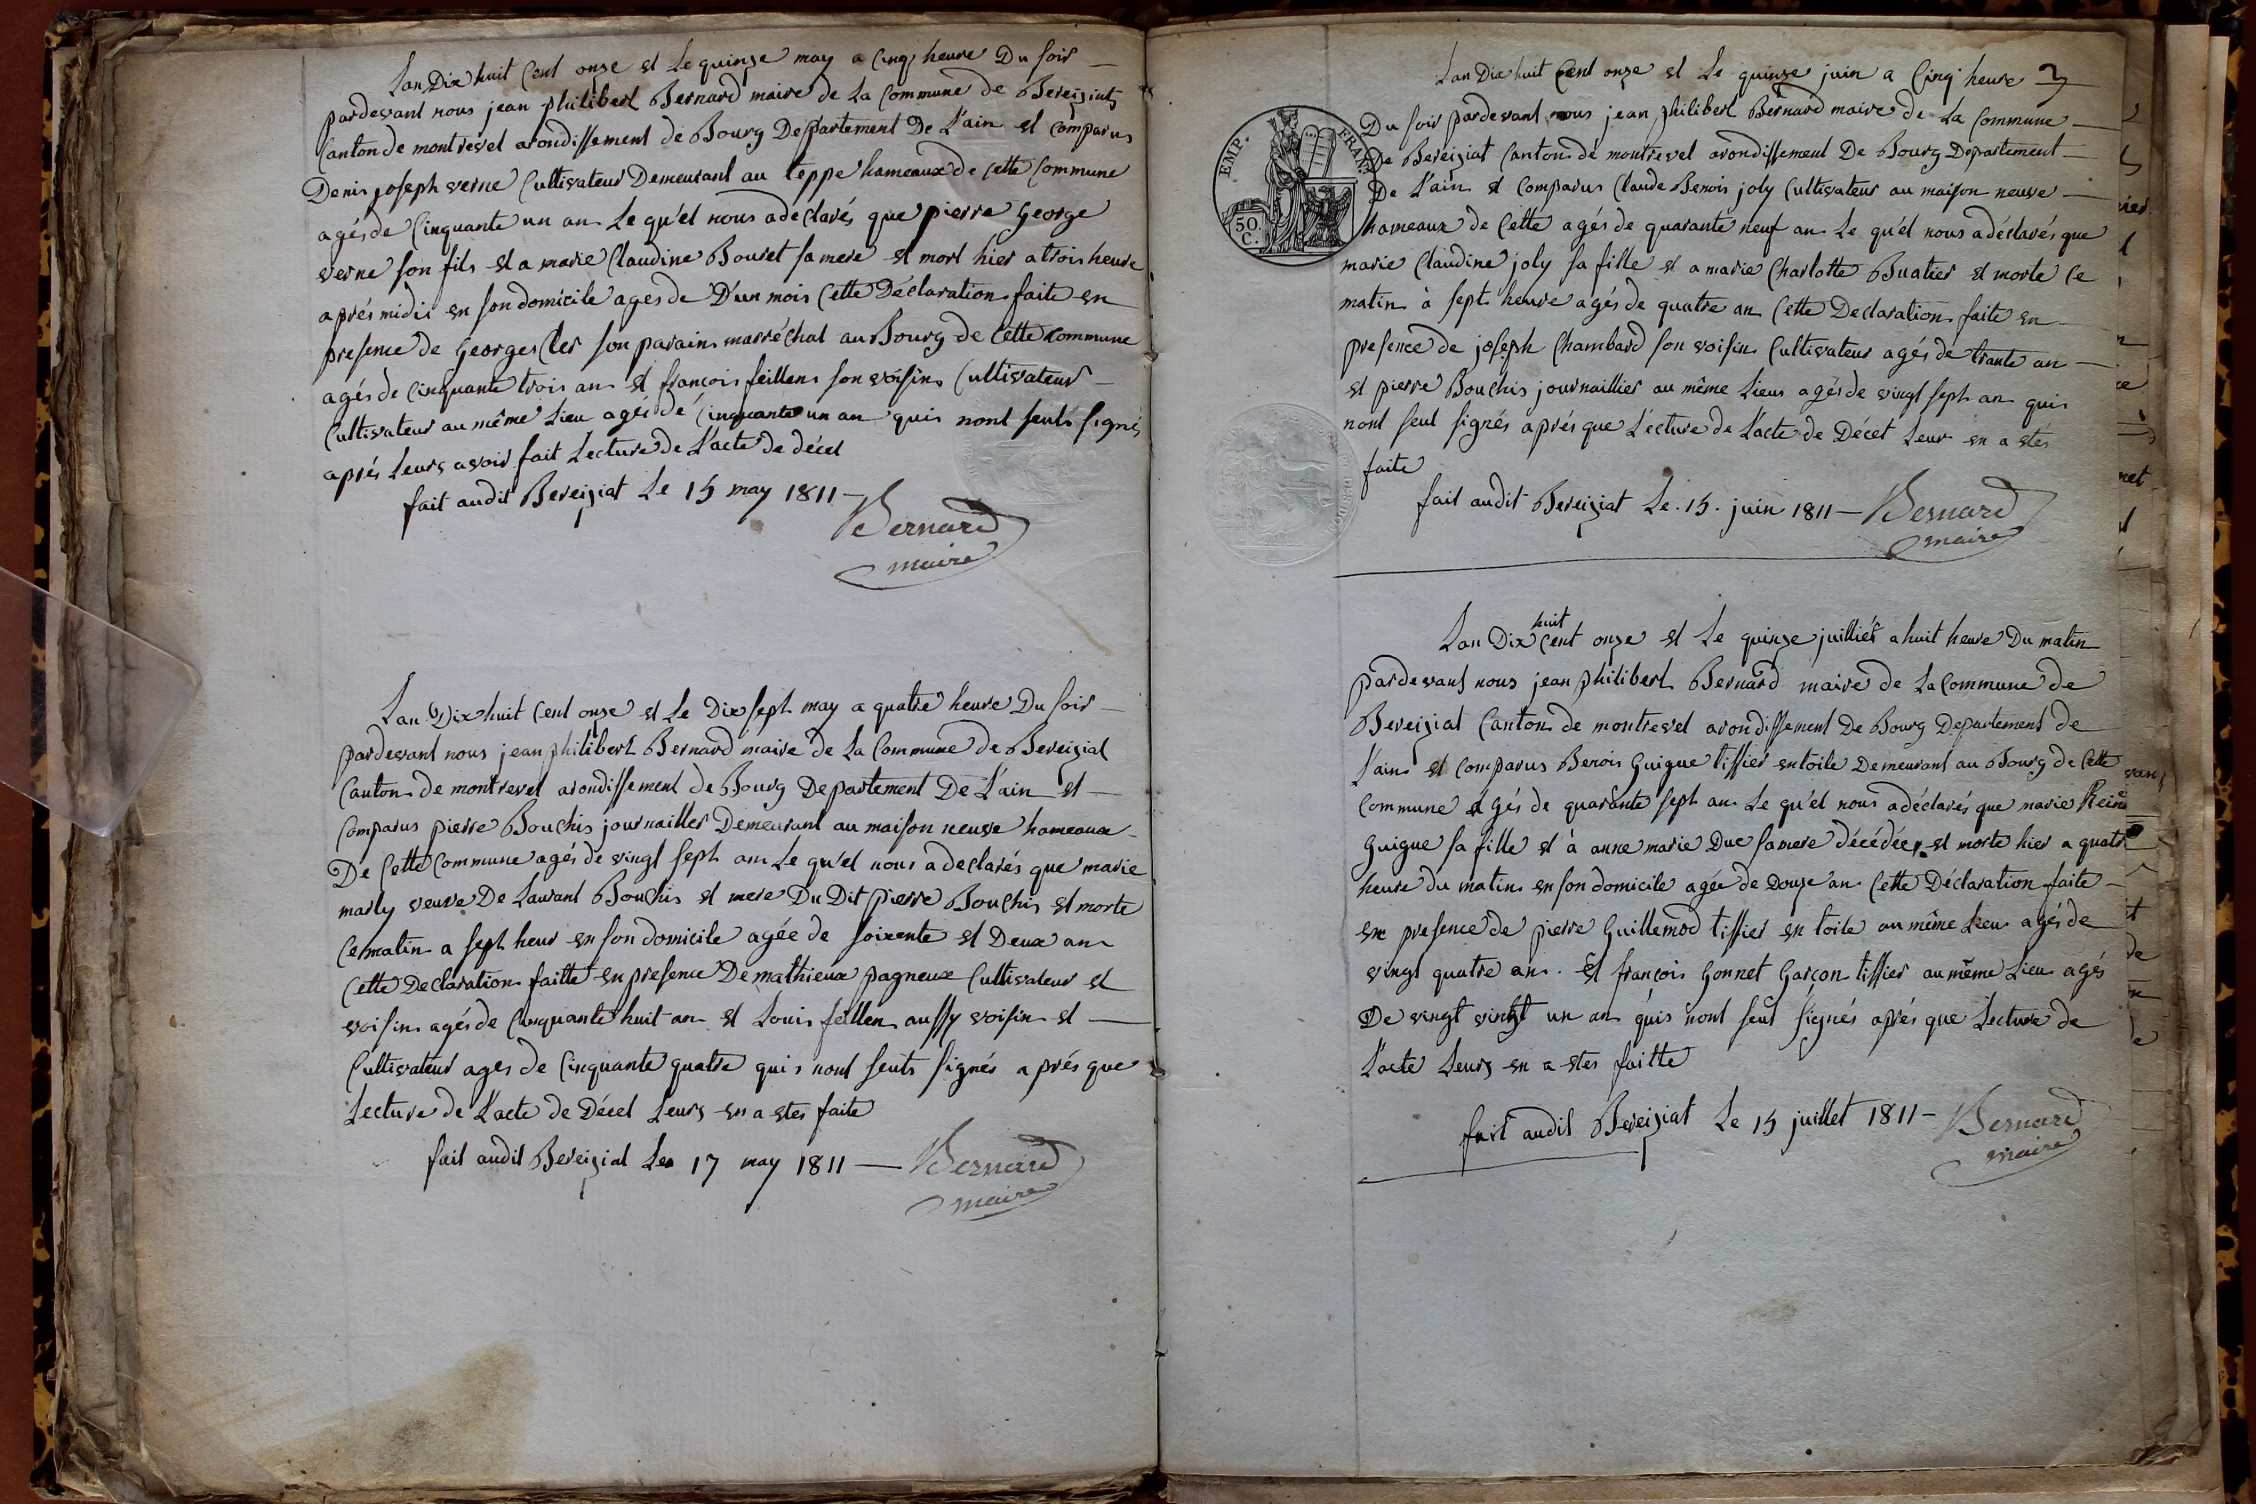 Lan Dix huit Cent onze et le quinze may a Cinq heure Du soir
pardevant nous jean philibert Bernard maire de La Commune de Bereiziat
Canton de montrevel arondissement de Bourg Departement De L'ain et Comparus
Denis joseph verne Cultivateur Demeurant au teppe hameaux de Cette Commune
agés de Cinquante un an Le qu'el nous a declarés que pierre George
verne son fils et a marie Claudine Bouret sa mere et mort hier a trois heure
aprés midis en son domicile ages de D'un mois Cette Déclaration faite en
presence de Georges Cler son parain marréchal au Bourg de Cette Commune
agés de Cinquante trois an et françois feillens son voisin Cultivateur
Cultivateur au même Lieu agés de Cinquante un an quis nont seuls signés
aprés Leurs avoir fait Lecture de L'acte de décet
fait audit Bereiziat Le 15 may 1811
Bernard
maire
Lan Dix huit Cent onze et Le Dix sept may a quatre heure Du soir
pardevant nous jean philibert Bernard maire de La Commune de Bereiziat
Canton de montrevel arondissement de Bourg Departement De L'ain et
Comparus pierre Bouchis journaillier Demeurant au maison neuve hameaux
De Cette Commune agés de vingt sept an Le qu'el nous a declarés que marie
marly veuve De Laurant Bouchis et mere Du Dit pierre Bouchis et morte
Ce matin a sept heur en son domicile agée de soixente et Deux an
Cette Declaration faitte en presence De mathieux pagneux Cultivateur et
voisin agés de Cinquante huit an et Louis feillen aussy voisin et
Cultivateur ages de Cinquante quatre qui nont seuts signés aprés que
Lecture de L'acte de Décet Leurs en a etes faite
fait audit Bereiziat Le 17 may 1811
Bernard
maire
3
Lan Dix huit Cent onze et Le quinze juin a Cinq heure
Du soir pardevant nous jean philibert Bernard maire de La Commune
De Bereiziat Canton de montrevel arondissement De Bourg Departement
De L'ain et Comparus Claude Benois joly Cultivateur au maison neuve
hameaux de Cette agés de quarante neuf an Le qu'el nous a déclarés que
marie Claudine joly sa fille et a marie Charlotte Buatier et morte Ce
matin à sept heure agés de quatre an Cette Declaration faite en
presence de joseph Chambard son voisin Cultivateur agés de trante an
et pierre Bouchis journaillier au même Lieus agés de vingt sept an quis
nont seul signés aprés que Lécture de L'acte de Décet Leur en a etés
faite
fait audit Bereiziat Le 15 juin 1811
Bernard
maire
EMP. FRAN.
50. C.
huit
Lan Dix Cent onze et Le quinze juilliét a huit heure Du matin
pardevant nous jean philibert Bernard maire de La Commune de
Bereiziat Canton de montrevel arondissement De Bourg Departement de
L'ain et Comparus Benois Guigue tissier en toile Demeurant au Bourg de Cette
Commune agés de quarante sept an Le qu'el nous a déclarés que marie Reine
Guigue sa fille et à anne marie Duc sa mere décédée et morte hier a quatre
heure du matin en son domicile agée de Douze an Cette Déclaration faite
en presence de pierre Guillemod tissier en toile au même Lieu agés de
vingt quatre an et françois Gonnet Garçon tissier au même Lieu agés
De vingt vingt un an quis nont seul signés aprés que Lecture de
L'acte Leurs en a etes faitte
fait audit Bereiziat Le 15 juillet 1811
Bernard
maire